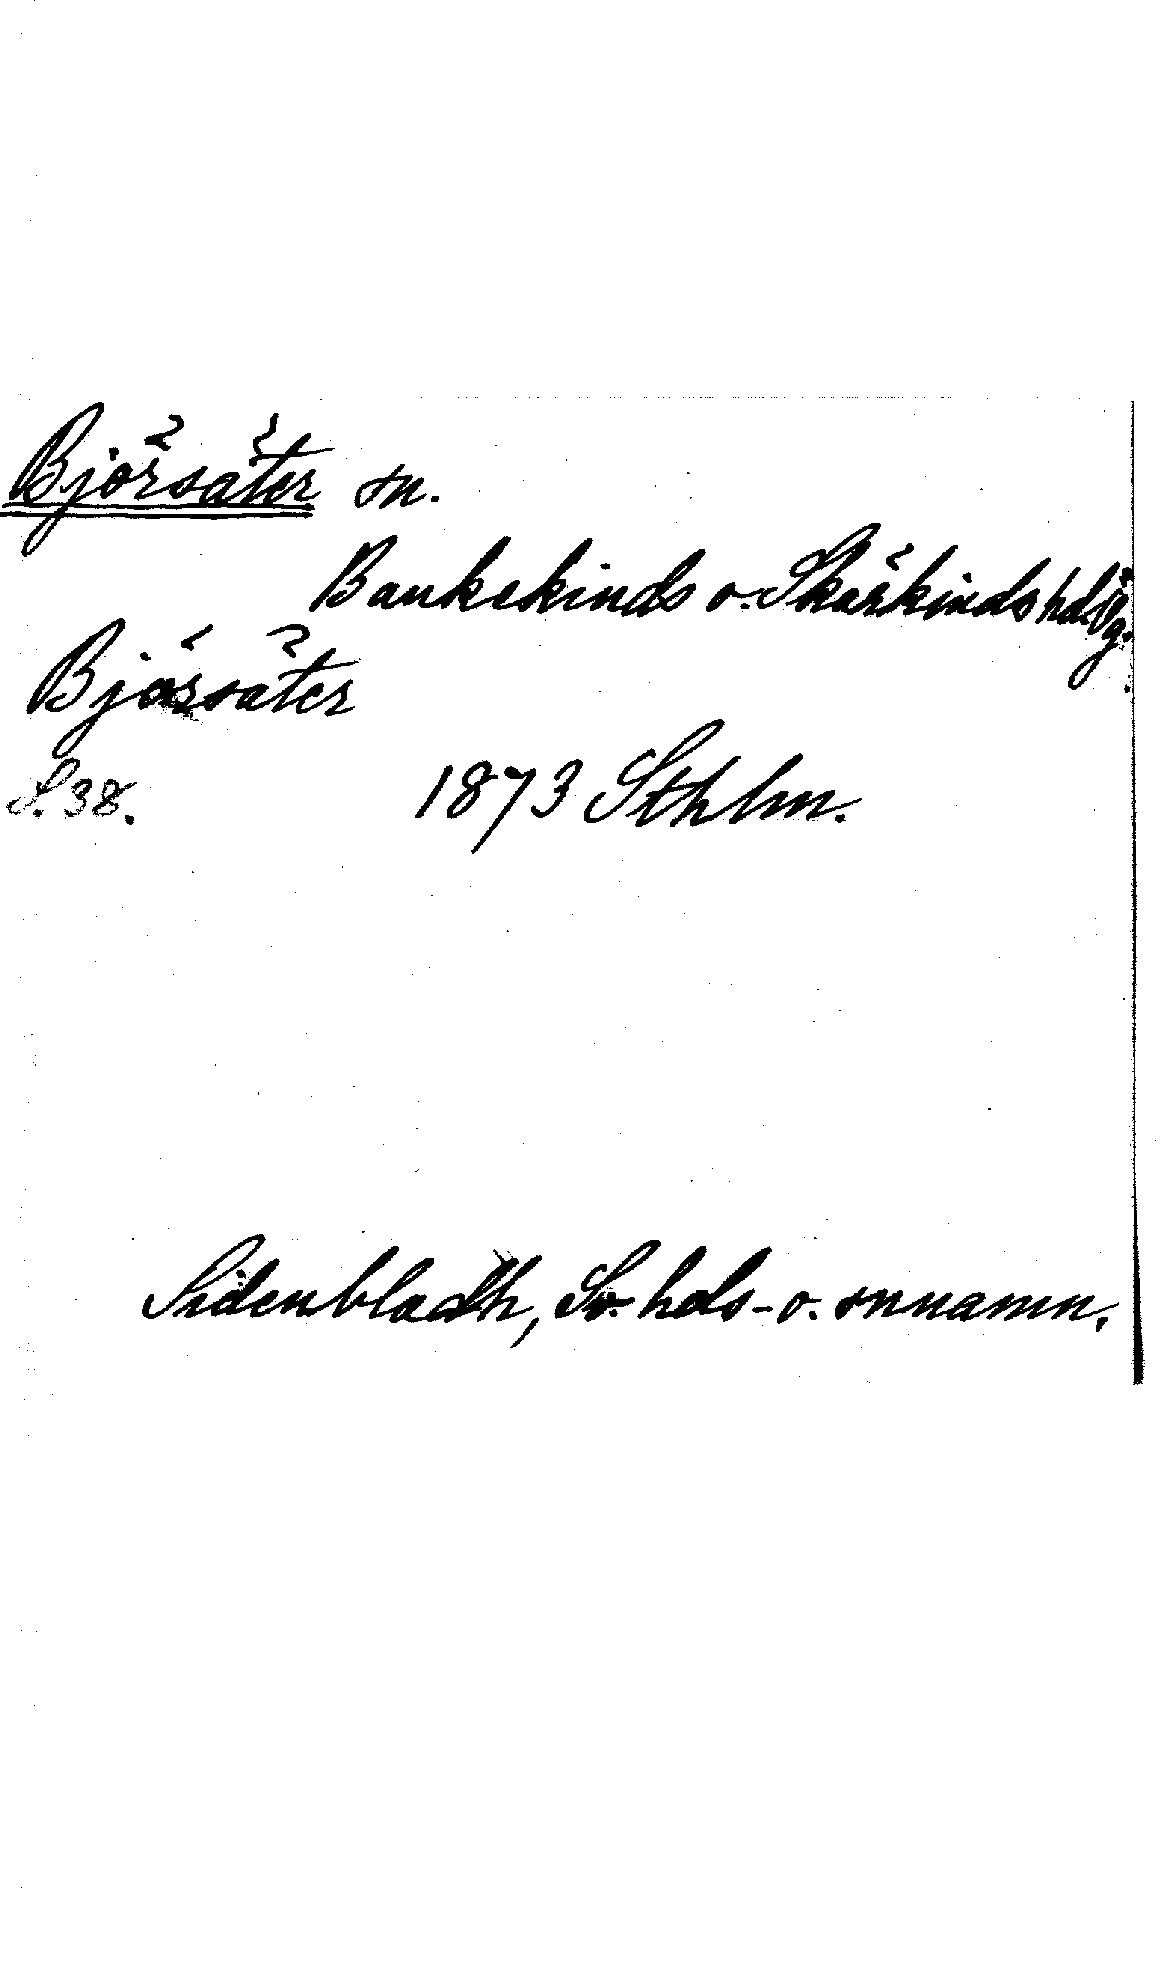 Björsäter sn.
Bankekinds o. Skärkinds hd Ög.
Björsäter
S. 38. 1873 Sthlm.
Sidenbladh, Sv. hds- o. snnamn.